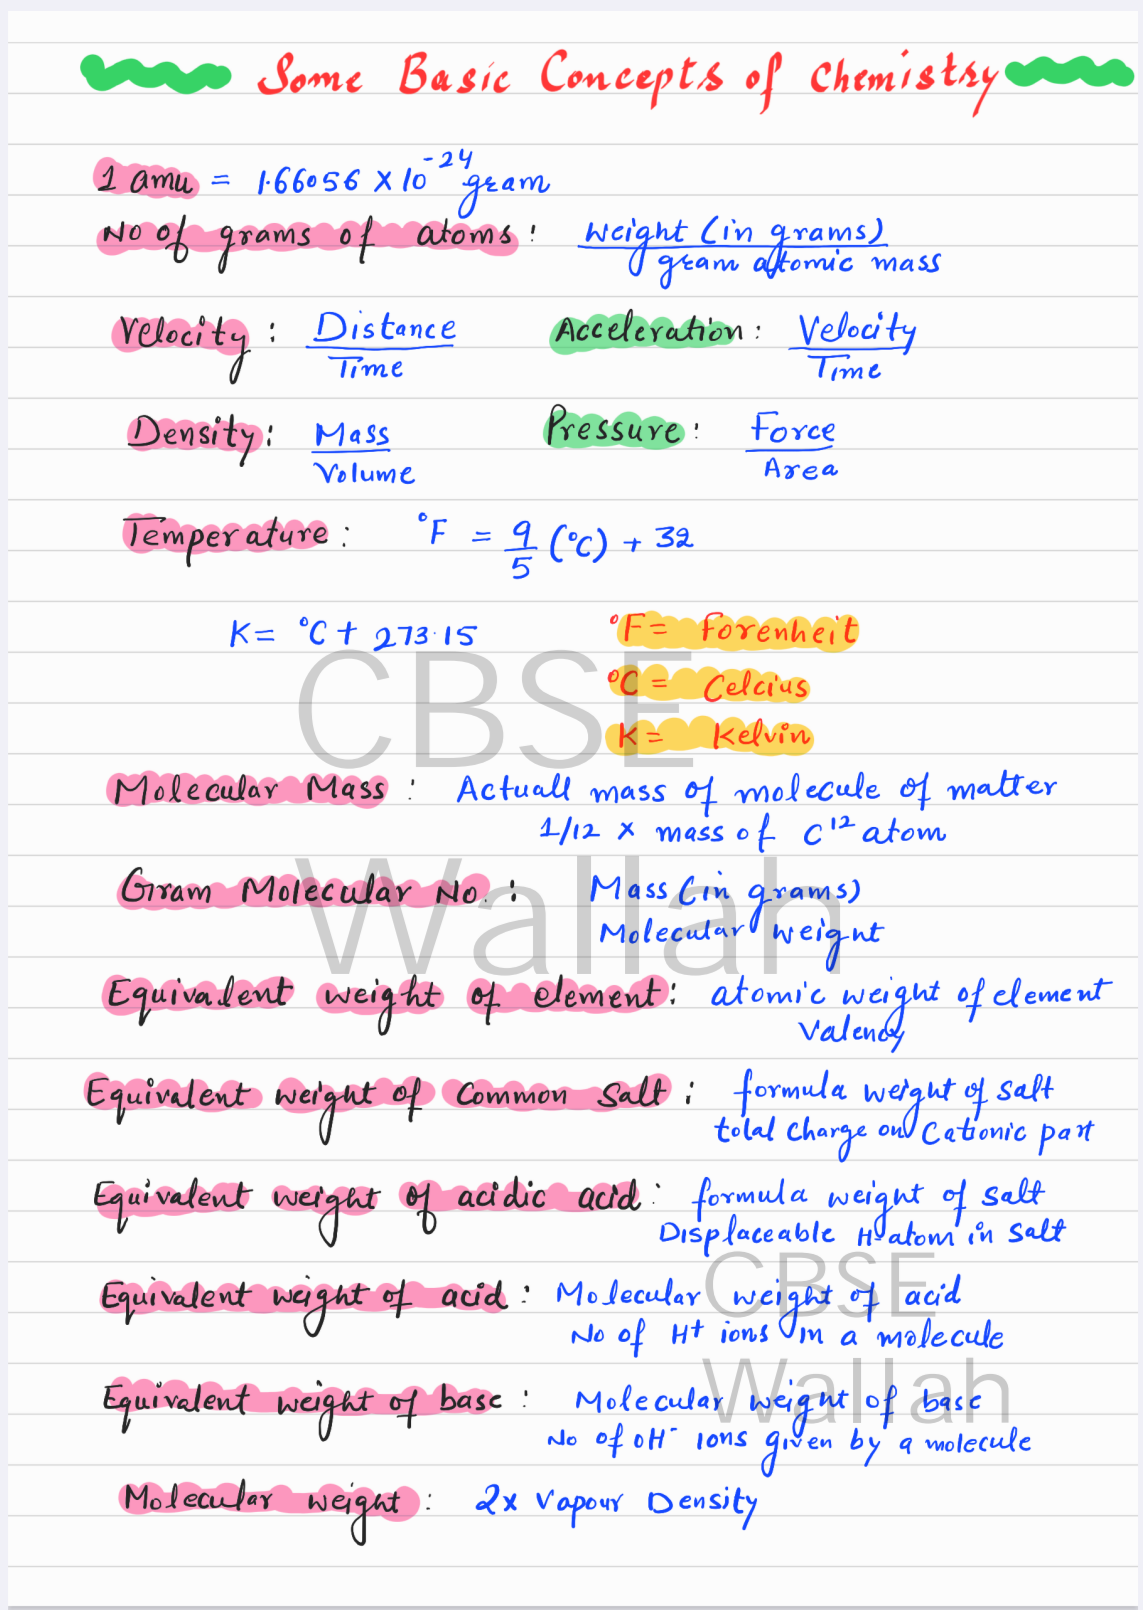 Some Basic Concepts of Chemistry
1 amu = 1.66056 X 10^-24 gram
No of grams of atoms : Weight (in grams)
gram atomic mass
Velocity : Distance Acceleration : Velocity
Time Time
Density : Mass Pressure : Force
Volume Area
Temperature : °F = 9/5 (°C) + 32
K = °C + 273.15 °F = Forenheit
°C = Celcius
K = Kelvin
CBSE
Molecular Mass : Actuall mass of molecule of matter
1/12 x mass of C^12 atom
Wallah
Gram Molecular No. : Mass (in grams)
Molecular weight
Equivalent weight of element : atomic weight of element
Valency
Equivalent weight of Common Salt : formula weight of salt
total charge on Cationic part
Equivalent weight of acidic acid : formula weight of salt
Displaceable H atom in salt
CBSE
Equivalent weight of acid : Molecular weight of acid
No of H+ ions in a molecule
Wallah
Equivalent weight of base : Molecular weight of base
No of OH- ions given by a molecule
Molecular weight : 2x Vapour Density